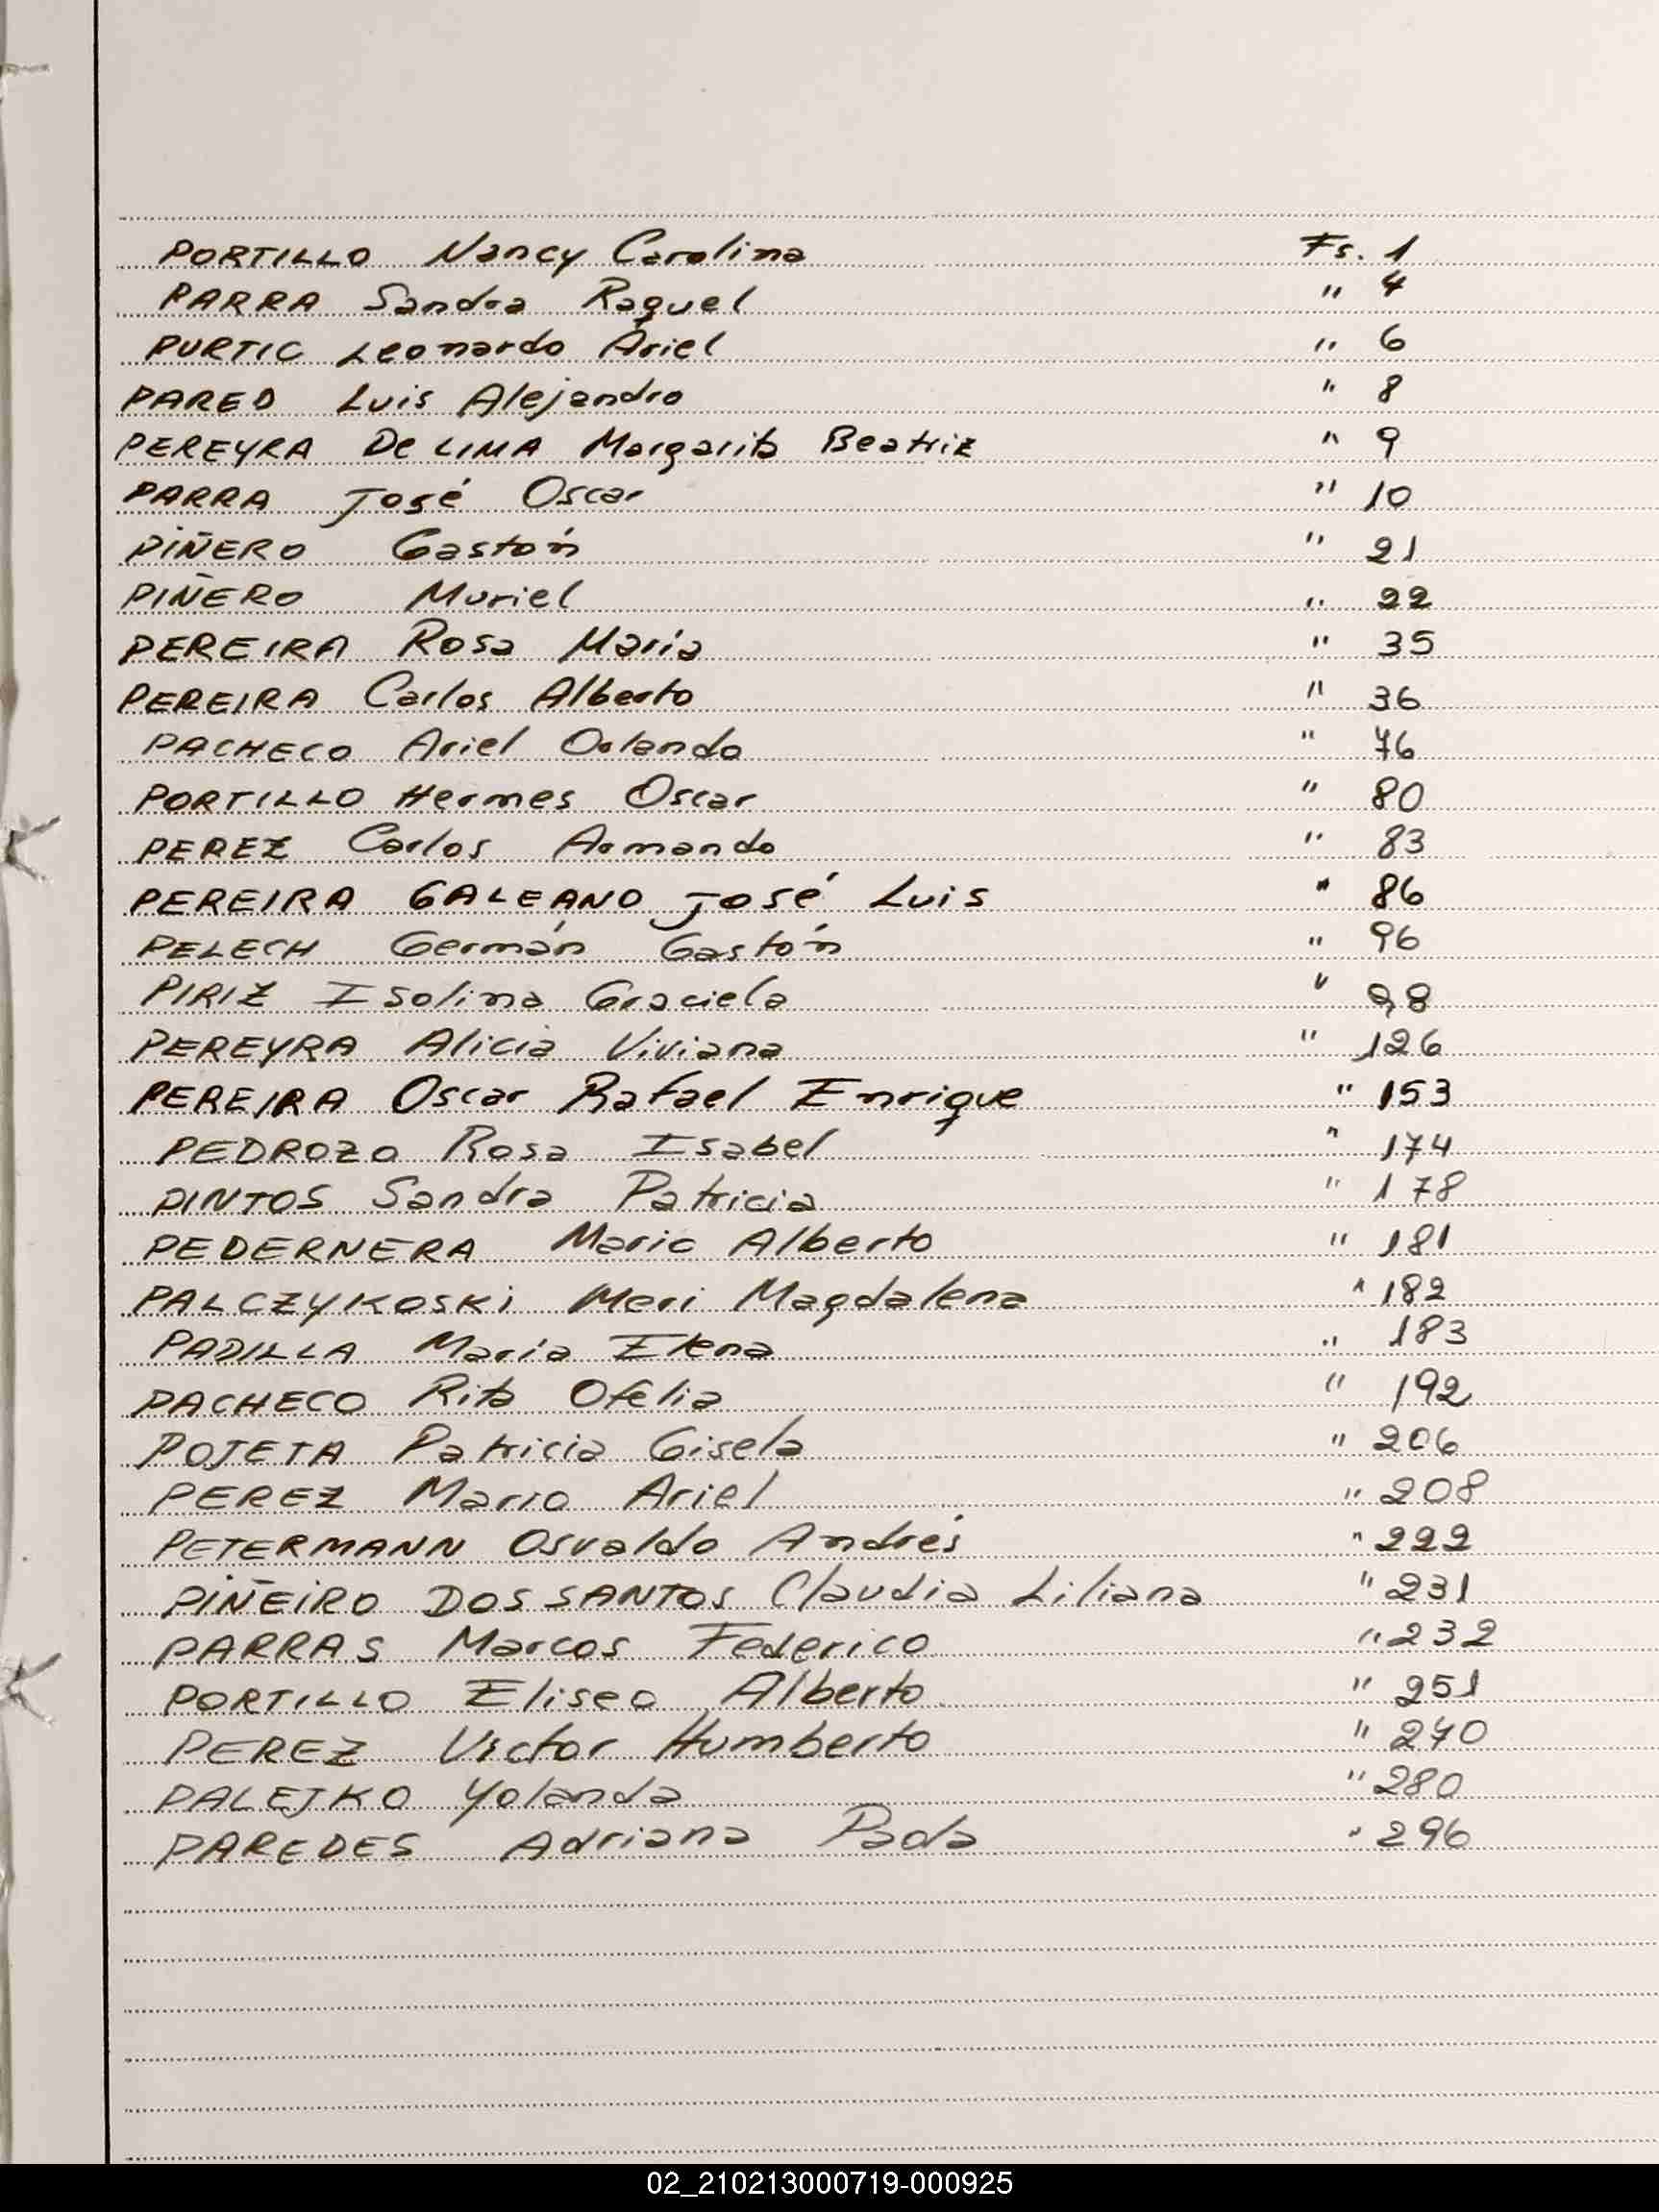 PORTILLO Nancy Carolina Fs. 1
PARRA Sandra Raquel " 4
PURTIC Leonardo Ariel " 6
PARED Luis Alejandro " 8
PEREYRA De LIMA Margarita Beatriz " 9
PARRA José Oscar " 10
PIÑERO Gastón " 21
PIÑERO Muriel " 22
PEREIRA Rosa María " 35
PEREIRA Carlos Alberto " 36
PACHECO Ariel Orlando " 76
PORTILLO Hermes Oscar " 80
PEREZ Carlos Armando " 83
PEREIRA GALEANO José Luis " 86
PELECH Germán Gastón " 96
PIRIZ Isolina Graciela " 98
PEREYRA Alicia Viviana " 126
PEREIRA Oscar Rafael Enrique " 153
PEDROZO Rosa Isabel " 174
PINTOS Sandra Patricia " 178
PEDERNERA Mario Alberto " 181
PALCZYKOSKi Meri Magdalena " 182
PADILLA María Elena " 183
PACHECO Rita Ofelia " 192
POJETA Patricia Gisela " 206
PEREZ Mario Ariel " 208
PETERMANN Osvaldo Andrés " 222
PIÑEIRO DOS SANTOS Claudia Liliana " 231
PARRAS Marcos Federico " 232
PORTILLO Eliseo Alberto " 251
PEREZ Victor Humberto " 270
PALEJKO Yolanda " 280
PAREDES Adriana " 296
02_210213000719-000925